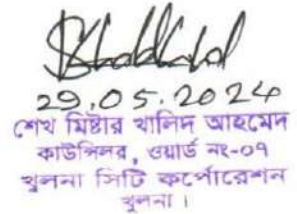 29.05.2024
শেখ মিষ্টার খালিদ আহমেদ
কাউন্সিলর, ওয়ার্ড নং-০৭
খুলনা সিটি কর্পোরেশন
খুলনা।